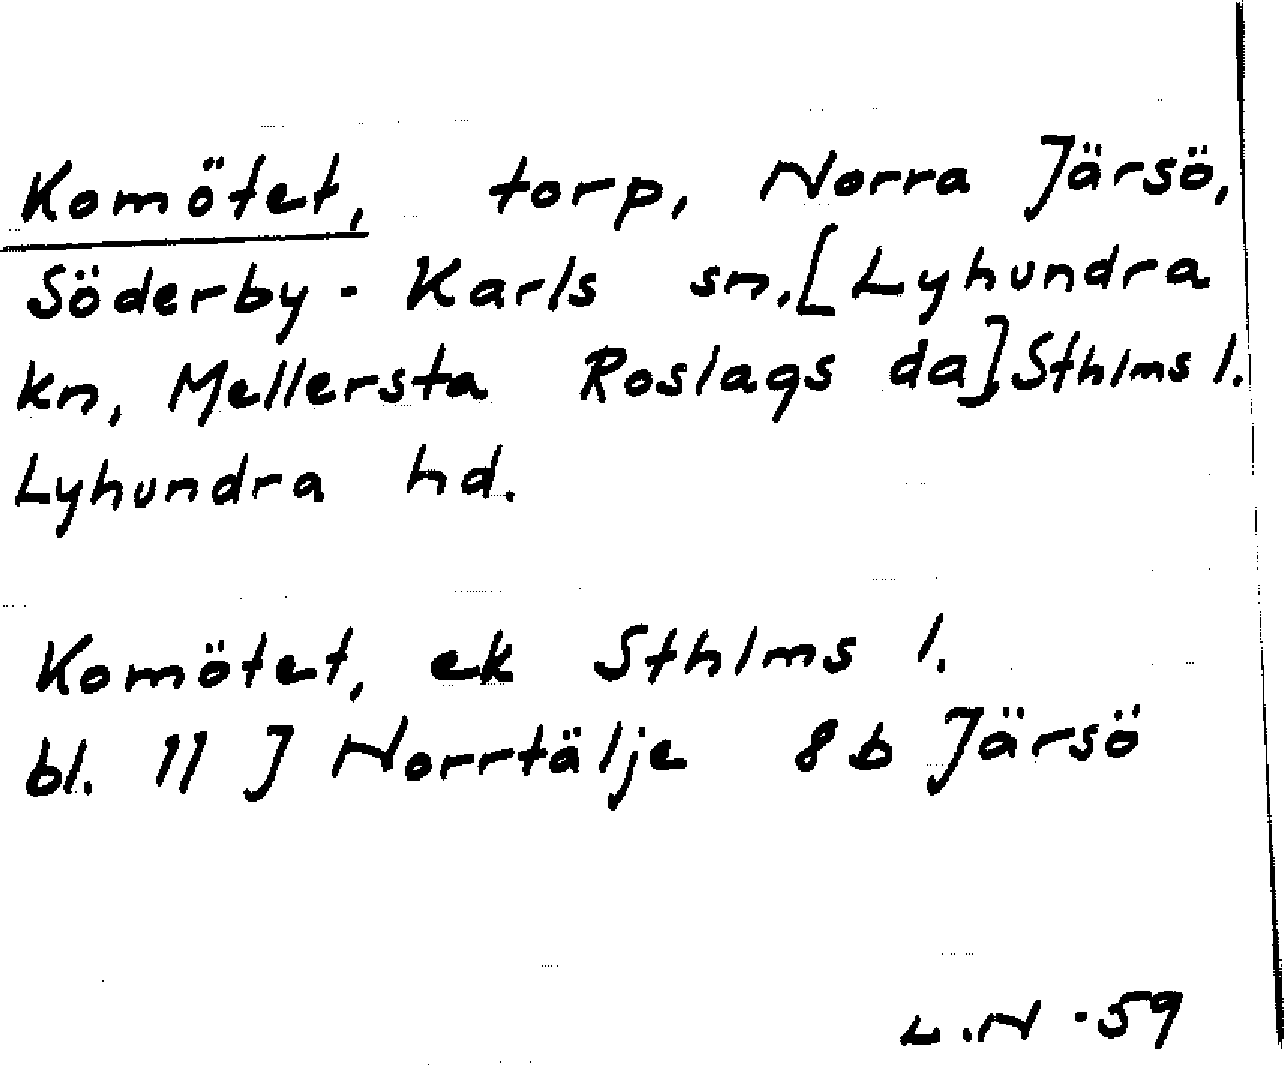 Komötet, torp, Norra Järsö,
Söderby - Karls sn. [Lyhundra
kn, Mellersta Roslags da] Sthlms l.
Lyhundra hd.
Komötet, ek Sthlms l.
bl. 11 J Norrtälje 8b Järsö
L.N -59